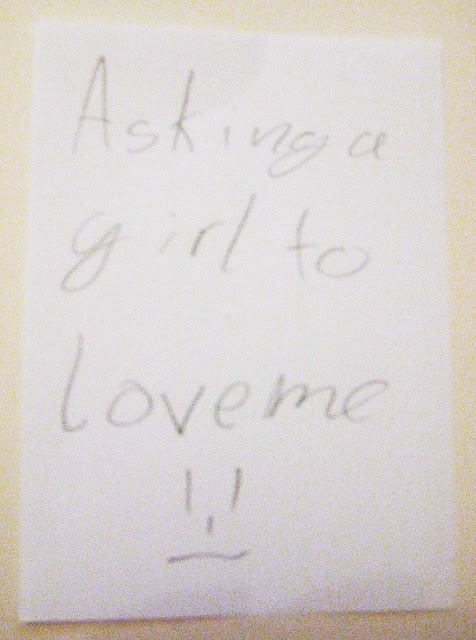 Asking a
girl to
love me